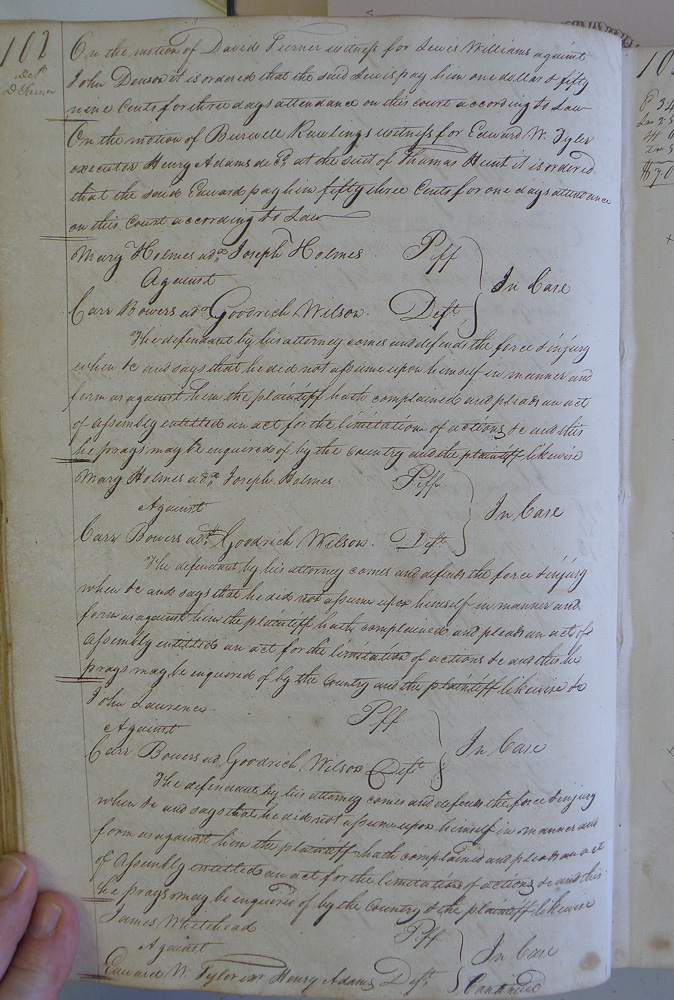 102
Del'd
D Turner
On the motion of David Turner witness for Lewis Williams against
John Denson it is ordered that the said Lewis pay him one dollar & fifty
nine Cents for three days attendance on this court according to Law
On the motion of Burwell Rawlings witness for Edward W. Tyler
executor Henry Adams dec'd at the suit of Thomas Hunt it is ordered
that the said Edward pay him fifty three Cents for one days attendance
on this Court according to Law
Mary Holmes adx Joseph Holmes Plff
Against
In Case
Carr Bowers adr Goodrich Wilson. Deft
The defendant by his attorney comes and defends the force & injury
when &c and says that he did not assume upon himself in manner and
form as against him the plaintiff hath complained and pleads an act
of assembly entitled an act for the limitation of actions &c and this
he prays may be enquired of by the Country and the plaintiff likewise
Mary Holmes adx Joseph Holmes Plff
Against
In Case
Carr Bowers adr Goodrich Wilson. Deft
The defendant by his attorney comes and defends the force & injury
when &c and says that he did not assume upon himself in manner and
form as against him the plaintiff hath complained and pleads an act of
Assembly entitled an act for the limitation of actions &c and this he
prays may be enquired of by the Country and the plaintiff likewise &c
John Lawrence. Plff
Against
In Case
Carr Bowers ad. Goodrich Wilson Deft
The defendant by his attorney comes and defends the force & injury
when &c and says that he did not assume upon himself in manner and
form as against him the plaintiff hath complained and pleads an act
of Assembly entitled an act for the limitation of actions &c and this
he prays may be enquired of by the Country & the plaintiff likewise
James Whitehead Plff
Against
In Case
Edward W. Tyler exr Henry Adams Deft
Continued
10